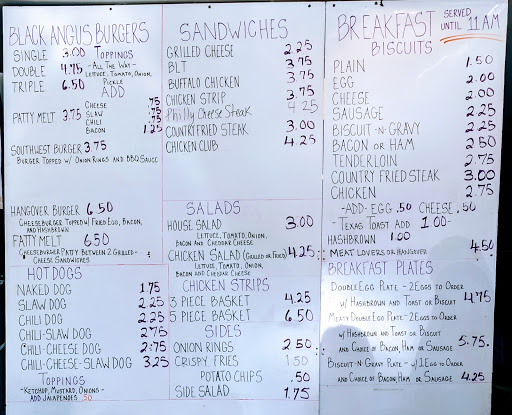 BLACK ANGUS BURGERS
SINGLE 3.00 TOPPINGS
DOUBLE 4.75 -ALL THE WAY-
LETTUCE, TOMATO, ONION,
TRIPLE 6.50 PICKLE
ADD
CHEESE .75
PATTY MELT 3.75 SLAW .75
CHILI .75
BACON 1.25
SOUTHWEST BURGER 3.75
BURGER TOPPED W/ ONION RINGS AND BBQ SAUCE
HANGOVER BURGER 6.50
CHEESEBURGER TOPPED W/ FRIED EGG, BACON,
AND HASHBROWN
FATTY MELT 6.50
CHEESEBURGER PATTY BETWEEN 2 GRILLED-
CHEESE SANDWICHES
HOT DOGS
NAKED DOG 1.75
SLAW DOG 2.25
CHILI DOG 2.25
CHILI-SLAW DOG 2.75
CHILI-CHEESE DOG 2.75
CHILI-CHEESE-SLAW DOG 3.25
TOPPINGS
-KETCHUP, MUSTARD, ONIONS-
ADD JALAPENOES .50
SANDWICHES
GRILLED CHEESE 2.25
BLT 3.75
BUFFALO CHICKEN 3.75
CHICKEN STRIP 3.75
Philly Cheese Steak 4.25
COUNTRY FRIED STEAK 3.00
CHICKEN CLUB 4.25
SALADS
HOUSE SALAD 3.00
LETTUCE, TOMATO, ONION,
BACON AND CHEDDAR CHEESE
CHICKEN SALAD (GRILLED OR FRIED) 4.25
LETTUCE, TOMATO, ONION,
BACON AND CHEDDAR CHEESE
CHICKEN STRIPS
3 PIECE BASKET 4.25
5 PIECE BASKET 6.50
SIDES
ONION RINGS 2.50
CRISPY FRIES 1.50
POTATO CHIPS .50
SIDE SALAD 1.75
BREAKFAST SERVED UNTIL 11AM
BISCUITS
PLAIN 1.50
EGG 2.00
CHEESE 2.00
SAUSAGE 2.25
BISCUIT-N-GRAVY 2.25
BACON OR HAM 2.50
TENDERLOIN 2.75
COUNTRY FRIED STEAK 3.00
CHICKEN 2.75
-ADD- EGG .50 CHEESE .50
-TEXAS TOAST ADD 1.00-
HASHBROWN 1.00
MEAT LOVERS OR HANGOVER 4.50
BREAKFAST PLATES
DOUBLE EGG PLATE - 2 EGGS TO ORDER
W/ HASHBROWN AND TOAST OR BISCUIT 4.75
MEATY DOUBLE EGG PLATE - 2 EGGS TO ORDER
W/ HASHBROWN AND TOAST OR BISCUIT
AND CHOICE OF BACON, HAM OR SAUSAGE 5.75.
BISCUIT-N-GRAVY PLATE - W/ 1 EGG TO ORDER
AND CHOICE OF BACON, HAM OR SAUSAGE 4.25